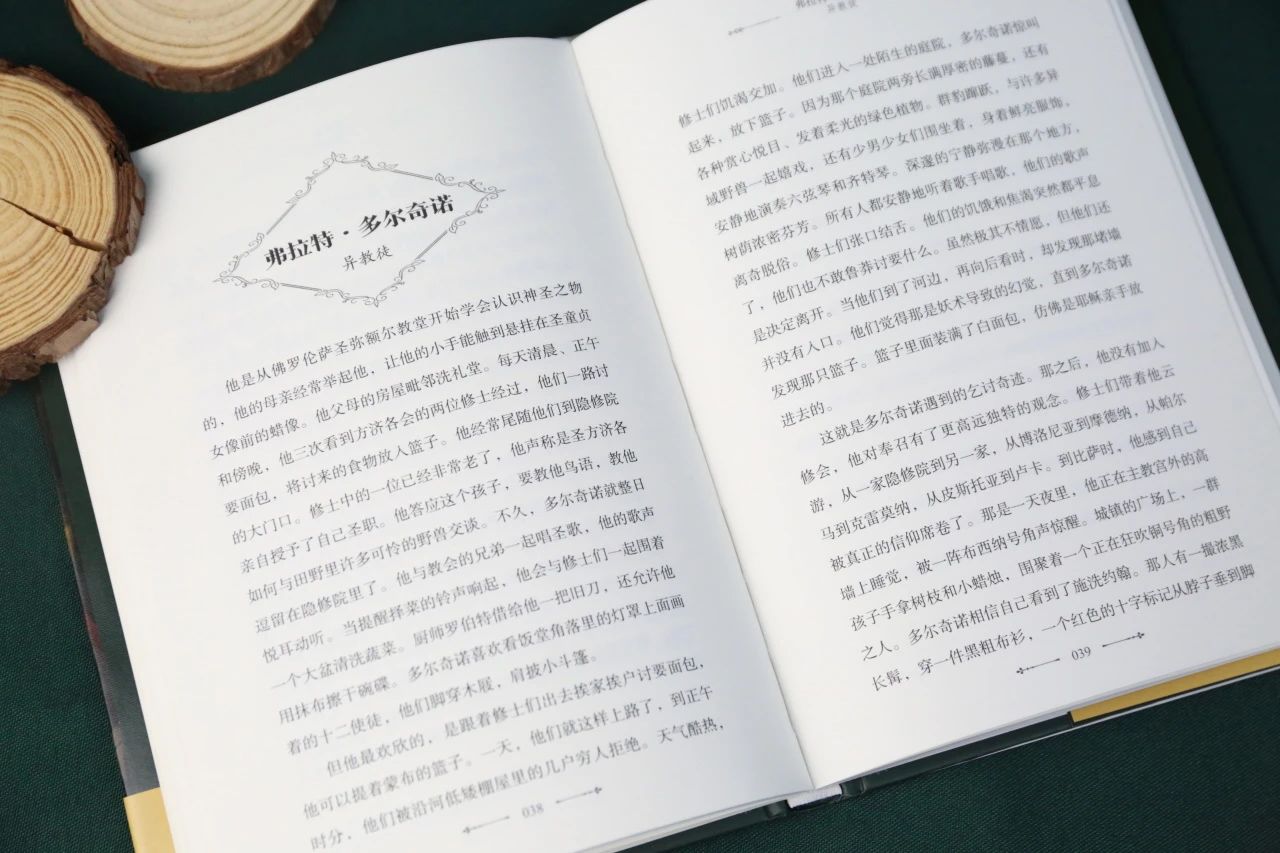 弗拉特·多尔奇诺
异教徒
他是从佛罗伦萨圣弥额尔教堂开始学会认识神圣之物
的，他的母亲经常举起他，让他的小手能触到悬挂在圣童贞
女像前的蜡像。他父母的房屋毗邻洗礼堂。每天清晨、正午
和傍晚，他三次看到方济各会的两位修士经过，他们一路讨
要面包，将讨来的食物放入篮子。他经常尾随他们到隐修院
的大门口。修士中的一位已经非常老了，他声称是圣方济各
亲自授予了自己圣职。他答应这个孩子，要教他鸟语，教他
如何与田野里许多可怜的野兽交谈。不久，多尔奇诺就整日
逗留在隐修院里了。他与教会的兄弟一起唱圣歌，他的歌声
悦耳动听。当提醒择菜的铃声响起，他会与修士们一起围着
一个大盆清洗蔬菜。厨师罗伯特借给他一把旧刀，还允许他
用抹布擦干碗碟。多尔奇诺喜欢看饭堂角落里的灯罩上面画
着的十二使徒，他们脚穿木屐，肩披小斗篷。
但他最欢欣的，是跟着修士们出去挨家挨户讨要面包，
他可以提着蒙布的篮子。一天，他们就这样上路了，到正午
时分，他们被沿河低矮棚屋里的几户穷人拒绝。天气酷热，
038
弗拉特
异教徒
修士们饥渴交加。他们进入一处陌生的庭院，多尔奇诺惊叫
起来，放下篮子。因为那个庭院两旁长满厚密的藤蔓，还有
各种赏心悦目、发着柔光的绿色植物。群豹蹿跃，与许多异
域野兽一起嬉戏，还有少男少女们围坐着，身着鲜亮服饰，
安静地演奏六弦琴和齐特琴。深邃的宁静弥漫在那个地方，
树荫浓密芬芳。所有人都安静地听着歌手唱歌，他们的歌声
离奇脱俗。修士们张口结舌。他们的饥饿和焦渴突然都平息
了，他们也不敢鲁莽讨要什么。虽然极其不情愿，但他们还
是决定离开。当他们到了河边，再向后看时，却发现那堵墙
并没有入口。他们觉得那是妖术导致的幻觉，直到多尔奇诺
发现那只篮子。篮子里面装满了白面包，仿佛是耶稣亲手放
进去的。
这就是多尔奇诺遇到的乞讨奇迹。那之后，他没有加入
修会，他对奉召有了更高远独特的观念。修士们带着他云
游，从一家隐修院到另一家，从博洛尼亚到摩德纳，从帕尔
马到克雷莫纳，从皮斯托亚到卢卡。到比萨时，他感到自己
被真正的信仰席卷了。那是一天夜里，他正在主教宫外的高
墙上睡觉，被一阵布西纳号角声惊醒。城镇的广场上，一群
孩子手拿树枝和小蜡烛，围聚着一个正在狂吹铜号角的粗野
之人。多尔奇诺相信自己看到了施洗约翰。那人有一撮浓黑
长髯，穿一件黑粗布衫，一个红色的十字标记从脖子垂到脚
039